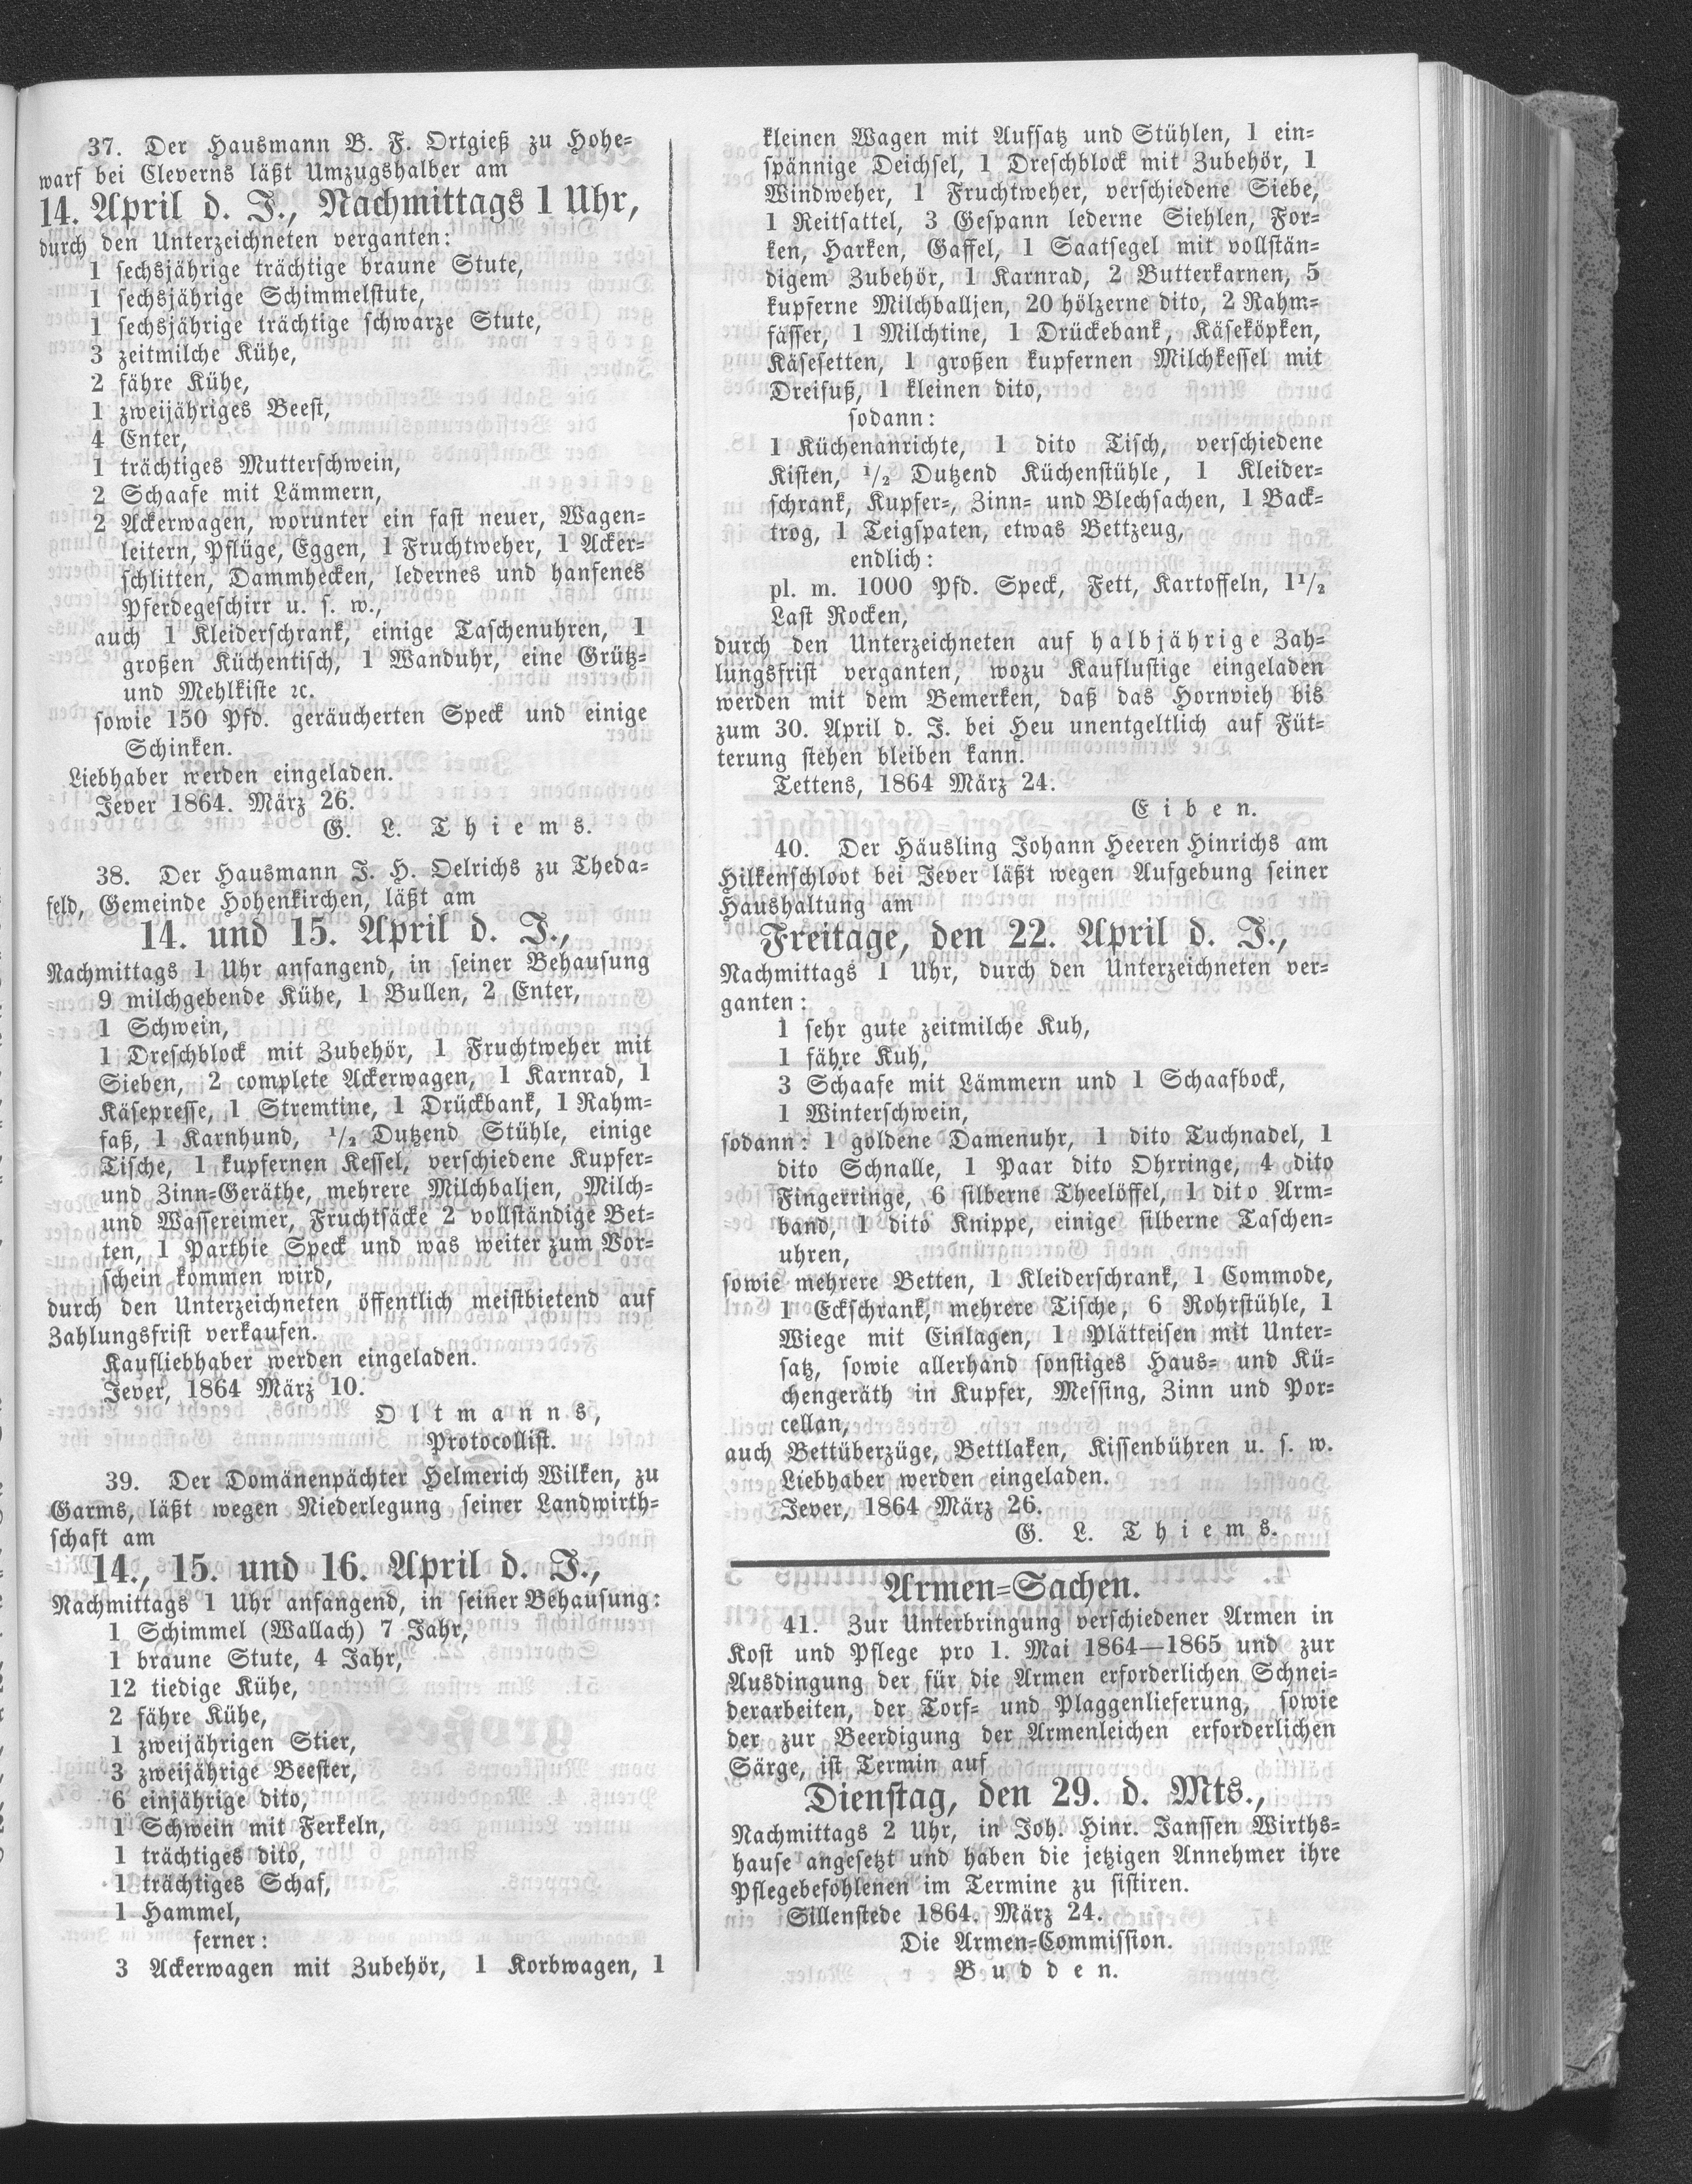 37. Der Hausmann B. F. Ortgieß zu Hohe-
warf bei Cleverns läßt Umzugshalber am
14. April d. J., Nachmittags 1 Uhr,
durch den Unterzeichneten verganten:
1 sechsjährige trächtige braune Stute,
1 sechsjährige Schimmelstute,
1 sechsjährige trächtige schwarze Stute,
3 zeitmilche Kühe,
2 fähre Kühe,
1 zweijähriges Beest,
4 Enter,
1 trächtiges Mutterschwein,
2 Schaafe mit Lämmern,
2 Ackerwagen, worunter ein fast neuer, Wagen-
leitern, Pflüge, Eggen, 1 Fruchtweher, 1 Acker-
schlitten, Dammhecken, ledernes und hanfenes
Pferdegeschirr u. s. w.,
auch 1 Kleiderschrank, einige Taschenuhren, 1
großen Küchentisch, 1 Wanduhr, eine Grütz-
und Mehlkiste ꝛc.
sowie 150 Pfd. geräucherten Speck und einige
Schinken.
Liebhaber werden eingeladen.
Jever 1864. März 26.
G. L. Thiems.
38. Der Hausmann J. H. Oelrichs zu Theda-
feld, Gemeinde Hohenkirchen, läßt am
14. und 15. April d. J.,
Nachmittags 1 Uhr anfangend, in seiner Behausung
9 milchgebende Kühe, 1 Bullen, 2 Enter,
1 Schwein,
1 Dreschblock mit Zubehör, 1 Fruchtweher mit
Sieben, 2 complete Ackerwagen, 1 Karnrad, 1
Käsepresse, 1 Stremtine, 1 Drückbank, 1 Rahm-
faß, 1 Karnhund, 1/2 Dutzend Stühle, einige
Tische, 1 kupfernen Kessel, verschiedene Kupfer-
und Zinn-Geräthe, mehrere Milchbaljen, Milch-
und Wassereimer, Fruchtsäcke 2 vollständige Bet-
ten, 1 Parthie Speck und was weiter zum Vor-
schein kommen wird,
durch den Unterzeichneten öffentlich meistbietend auf
Zahlungsfrist verkaufen.
Kaufliebhaber werden eingeladen.
Jever, 1864 März 10.
Oltmanns,
Protocollist.
39. Der Domänenpächter Helmerich Wilken, zu
Garms, läßt wegen Niederlegung seiner Landwirth-
schaft am
14., 15. und 16. April d. J.,
Nachmittags 1 Uhr anfangend, in seiner Behausung:
1 Schimmel (Wallach) 7 Jahr,
1 braune Stute, 4 Jahr,
12 tiedige Kühe,
2 fähre Kühe,
1 zweijährigen Stier,
3 zweijährige Beester,
6 einjährige dito,
1 Schwein mit Ferkeln,
1 trächtiges dito,
1 trächtiges Schaf,
1 Hammel,
ferner:
3 Ackerwagen mit Zubehör, 1 Korbwagen, 1
kleinen Wagen mit Aufsatz und Stühlen, 1 ein-
spännige Deichsel, 1 Dreschblock mit Zubehör, 1
Windweher, 1 Fruchtweher, verschiedene Siebe,
1 Reitsattel, 3 Gespann lederne Siehlen, For-
ken, Harken, Gaffel, 1 Saatsegel mit vollstän-
digem Zubehör, 1 Karnrad, 2 Butterkarnen, 5
kupferne Milchballjen, 20 hölzerne dito, 2 Rahm-
fässer, 1 Milchtine, 1 Drückebank, Käseköpken,
Käsesetten, 1 großen kupfernen Milchkessel mit
Dreifuß, 1 kleinen dito,
sodann:
1 Küchenanrichte, 1 dito Tisch, verschiedene
Kisten, 1/2 Dutzend Küchenstühle, 1 Kleider-
schrank, Kupfer-, Zinn- und Blechsachen, 1 Back-
trog, 1 Teigspaten, etwas Bettzeug,
endlich:
pl. m. 1000 Pfd. Speck, Fett, Kartoffeln, 1 1/2
Last Rocken,
durch den Unterzeichneten auf halbjährige Zah-
lungsfrist verganten, wozu Kauflustige eingeladen
werden mit dem Bemerken, daß das Hornvieh bis
zum 30. April d. J. bei Heu unentgeltlich auf Füt-
terung stehen bleiben kann.
Tettens, 1864 März 24.
Eiben.
40. Der Häusling Johann Heeren Hinrichs am
Hilkenschloot bei Jever läßt wegen Aufgebung seiner
Haushaltung am
Freitage, den 22. April d. J.,
Nachmittags 1 Uhr, durch den Unterzeichneten ver-
ganten:
1 sehr gute zeitmilche Kuh,
1 fähre Kuh,
3 Schaafe mit Lämmern und 1 Schaafbock,
1 Winterschwein,
sodann: 1 goldene Damenuhr, 1 dito Tuchnadel, 1
dito Schnalle, 1 Paar dito Ohrringe, 4 dito
Fingerringe, 6 silberne Theelöffel, 1 dito Arm-
band, 1 dito Knippe, einige silberne Taschen-
uhren,
sowie mehrere Betten, 1 Kleiderschrank, 1 Commode,
1 Eckschrank, mehrere Tische, 6 Rohrstühle, 1
Wiege mit Einlagen, 1 Plätteisen mit Unter-
satz, sowie allerhand sonstiges Haus- und Kü-
chengeräth in Kupfer, Messing, Zinn und Por-
cellan,
auch Bettüberzüge, Bettlaken, Kissenbühren u. s. w.
Liebhaber werden eingeladen.
Jever, 1864 März 26.
G. L. Thiems.
Armen-Sachen.
41. Zur Unterbringung verschiedener Armen in
Kost und Pflege pro 1. Mai 1864—1865 und zur
Ausdingung der für die Armen erforderlichen Schnei-
derarbeiten, der Torf- und Plaggenlieferung, sowie
der zur Beerdigung der Armenleichen erforderlichen
Särge, ist Termin auf
Dienstag, den 29. d. Mts.,
Nachmittags 2 Uhr, in Joh. Hinr. Janssen Wirths-
hause angesetzt und haben die jetzigen Annehmer ihre
Pflegebefohlenen im Termine zu sistiren.
Sillenstede 1864. März 24.
Die Armen-Commission.
Budden.